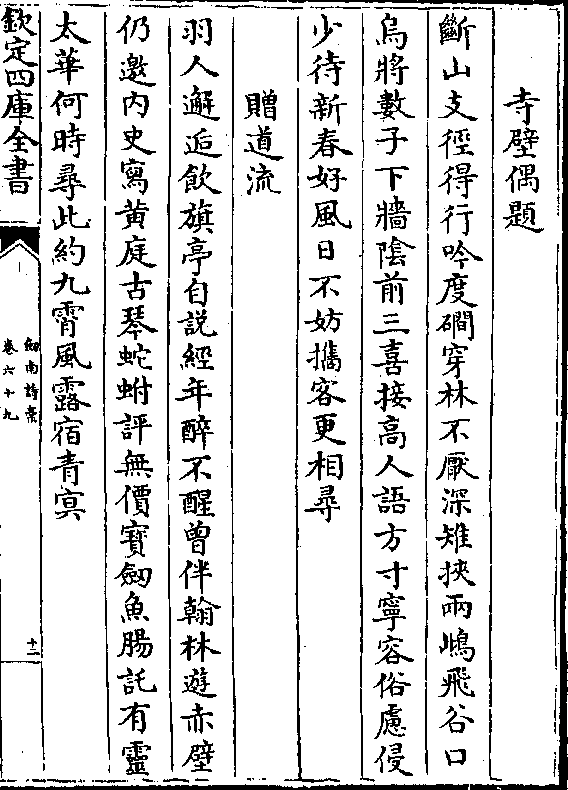 寺壁偶題
斷山支徑得行吟度磵穿林不厭深雉挾兩鴟飛谷口
烏將數子下牆陰前三喜接高人語方寸寧容俗慮侵
少待新春好風日不妨攜客更相尋
贈道流
羽人邂逅飲旗亭自說經年醉不醒曾伴翰林遊赤壁
仍邀内史寫黄庭古琴蛇蚹評無價寶劒魚腸託有靈
太華何時尋此約九霄風露宿青㝠
欽定四庫全書
劒南詩槀
卷六十九
十二